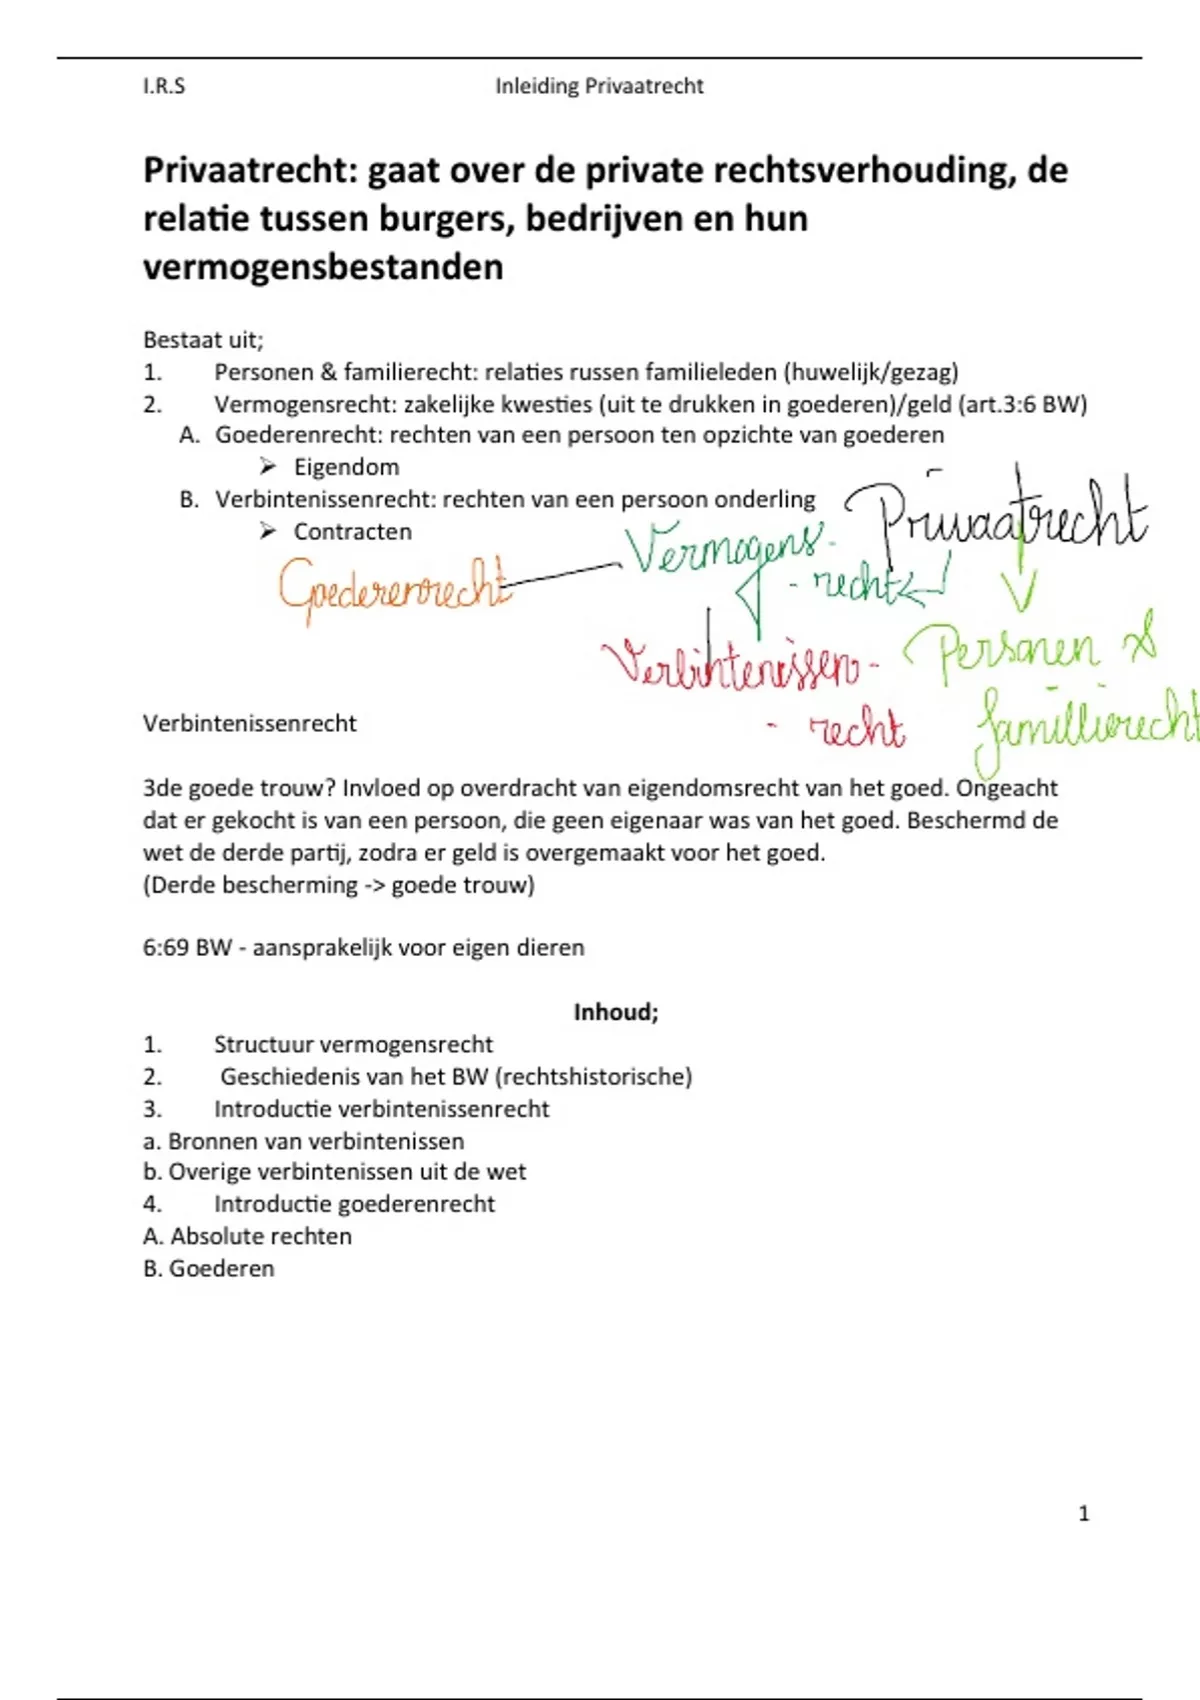 I.R.S Inleiding Privaatrecht
Privaatrecht: gaat over de private rechtsverhouding, de
relatie tussen burgers, bedrijven en hun
vermogensbestanden
Bestaat uit;
1. Personen & familierecht: relaties russen familieleden (huwelijk/gezag)
2. Vermogensrecht: zakelijke kwesties (uit te drukken in goederen)/geld (art.3:6 BW)
A. Goederenrecht: rechten van een persoon ten opzichte van goederen
➢ Eigendom
B. Verbintenissenrecht: rechten van een persoon onderling
➢ Contracten
Privaatrecht
Vermogens-
-recht
Goederenrecht
Verbintenissen-
-recht
Personen &
famillierecht
Verbintenissenrecht
3de goede trouw? Invloed op overdracht van eigendomsrecht van het goed. Ongeacht
dat er gekocht is van een persoon, die geen eigenaar was van het goed. Beschermd de
wet de derde partij, zodra er geld is overgemaakt voor het goed.
(Derde bescherming -> goede trouw)
6:69 BW - aansprakelijk voor eigen dieren
Inhoud;
1. Structuur vermogensrecht
2. Geschiedenis van het BW (rechtshistorische)
3. Introductie verbintenissenrecht
a. Bronnen van verbintenissen
b. Overige verbintenissen uit de wet
4. Introductie goederenrecht
A. Absolute rechten
B. Goederen
1